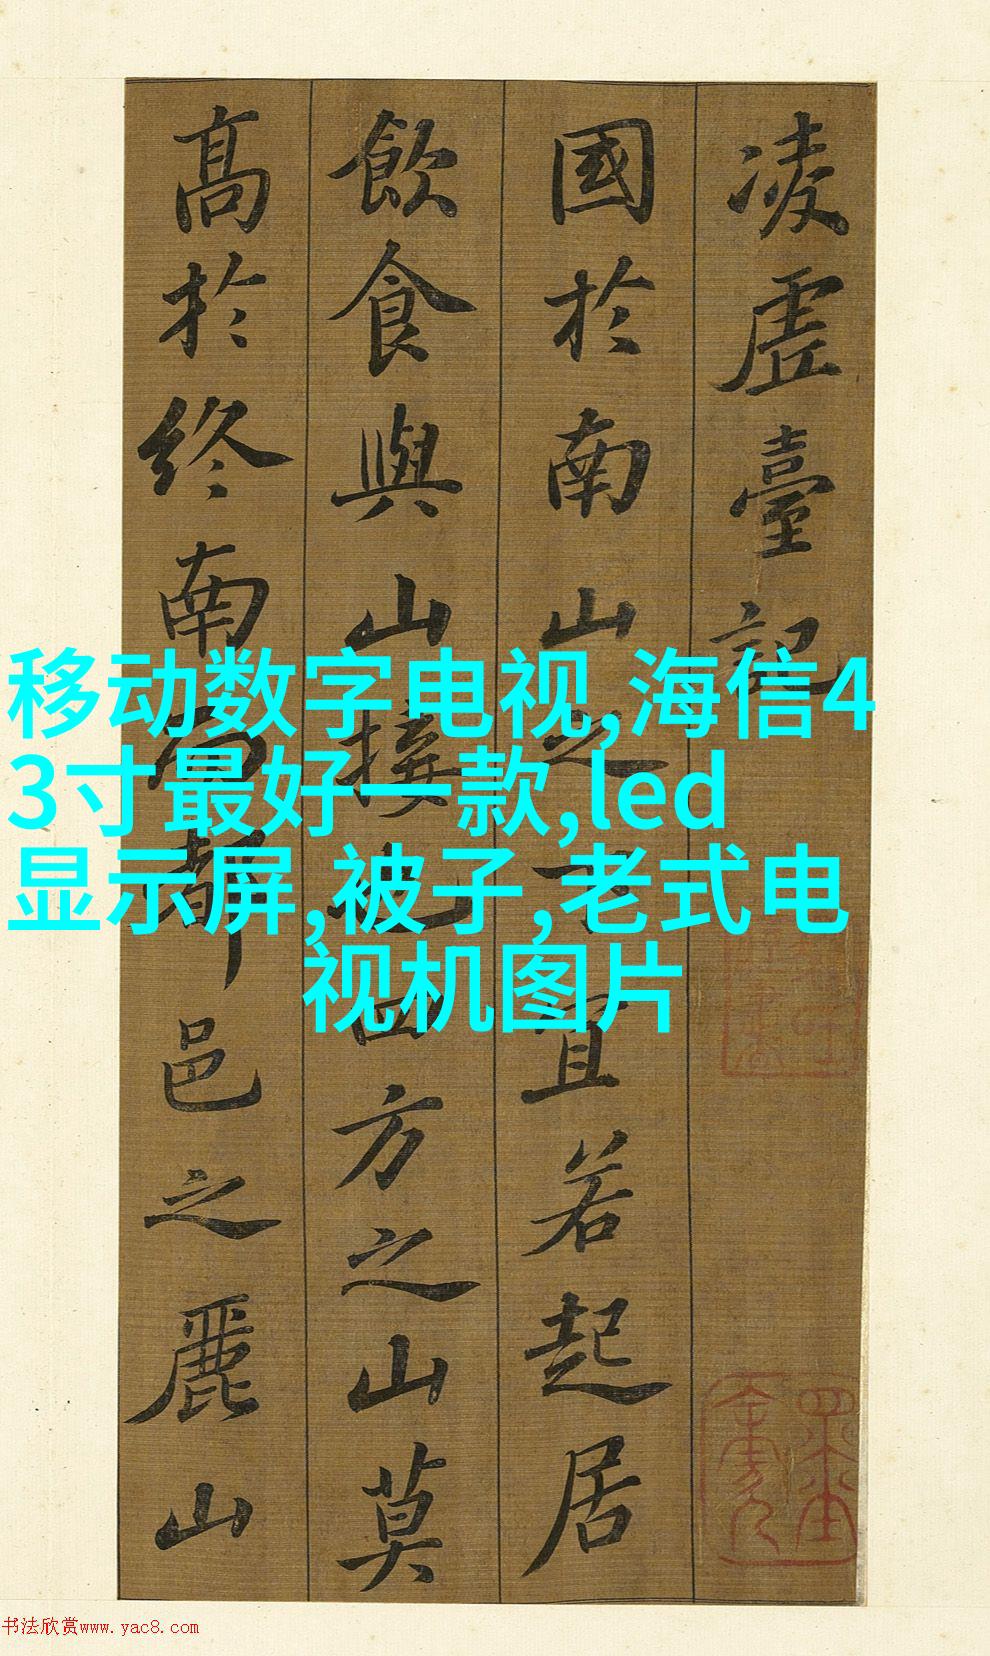 凌虛臺記
國於南山之下宜若起居
飲食與山接也四方之山莫
高於終南而都邑之麗山
移动数字电视,海信4
3寸最好一款,led
显示屏,被子,老式电
视机图片
书法欣赏www.yac8.com